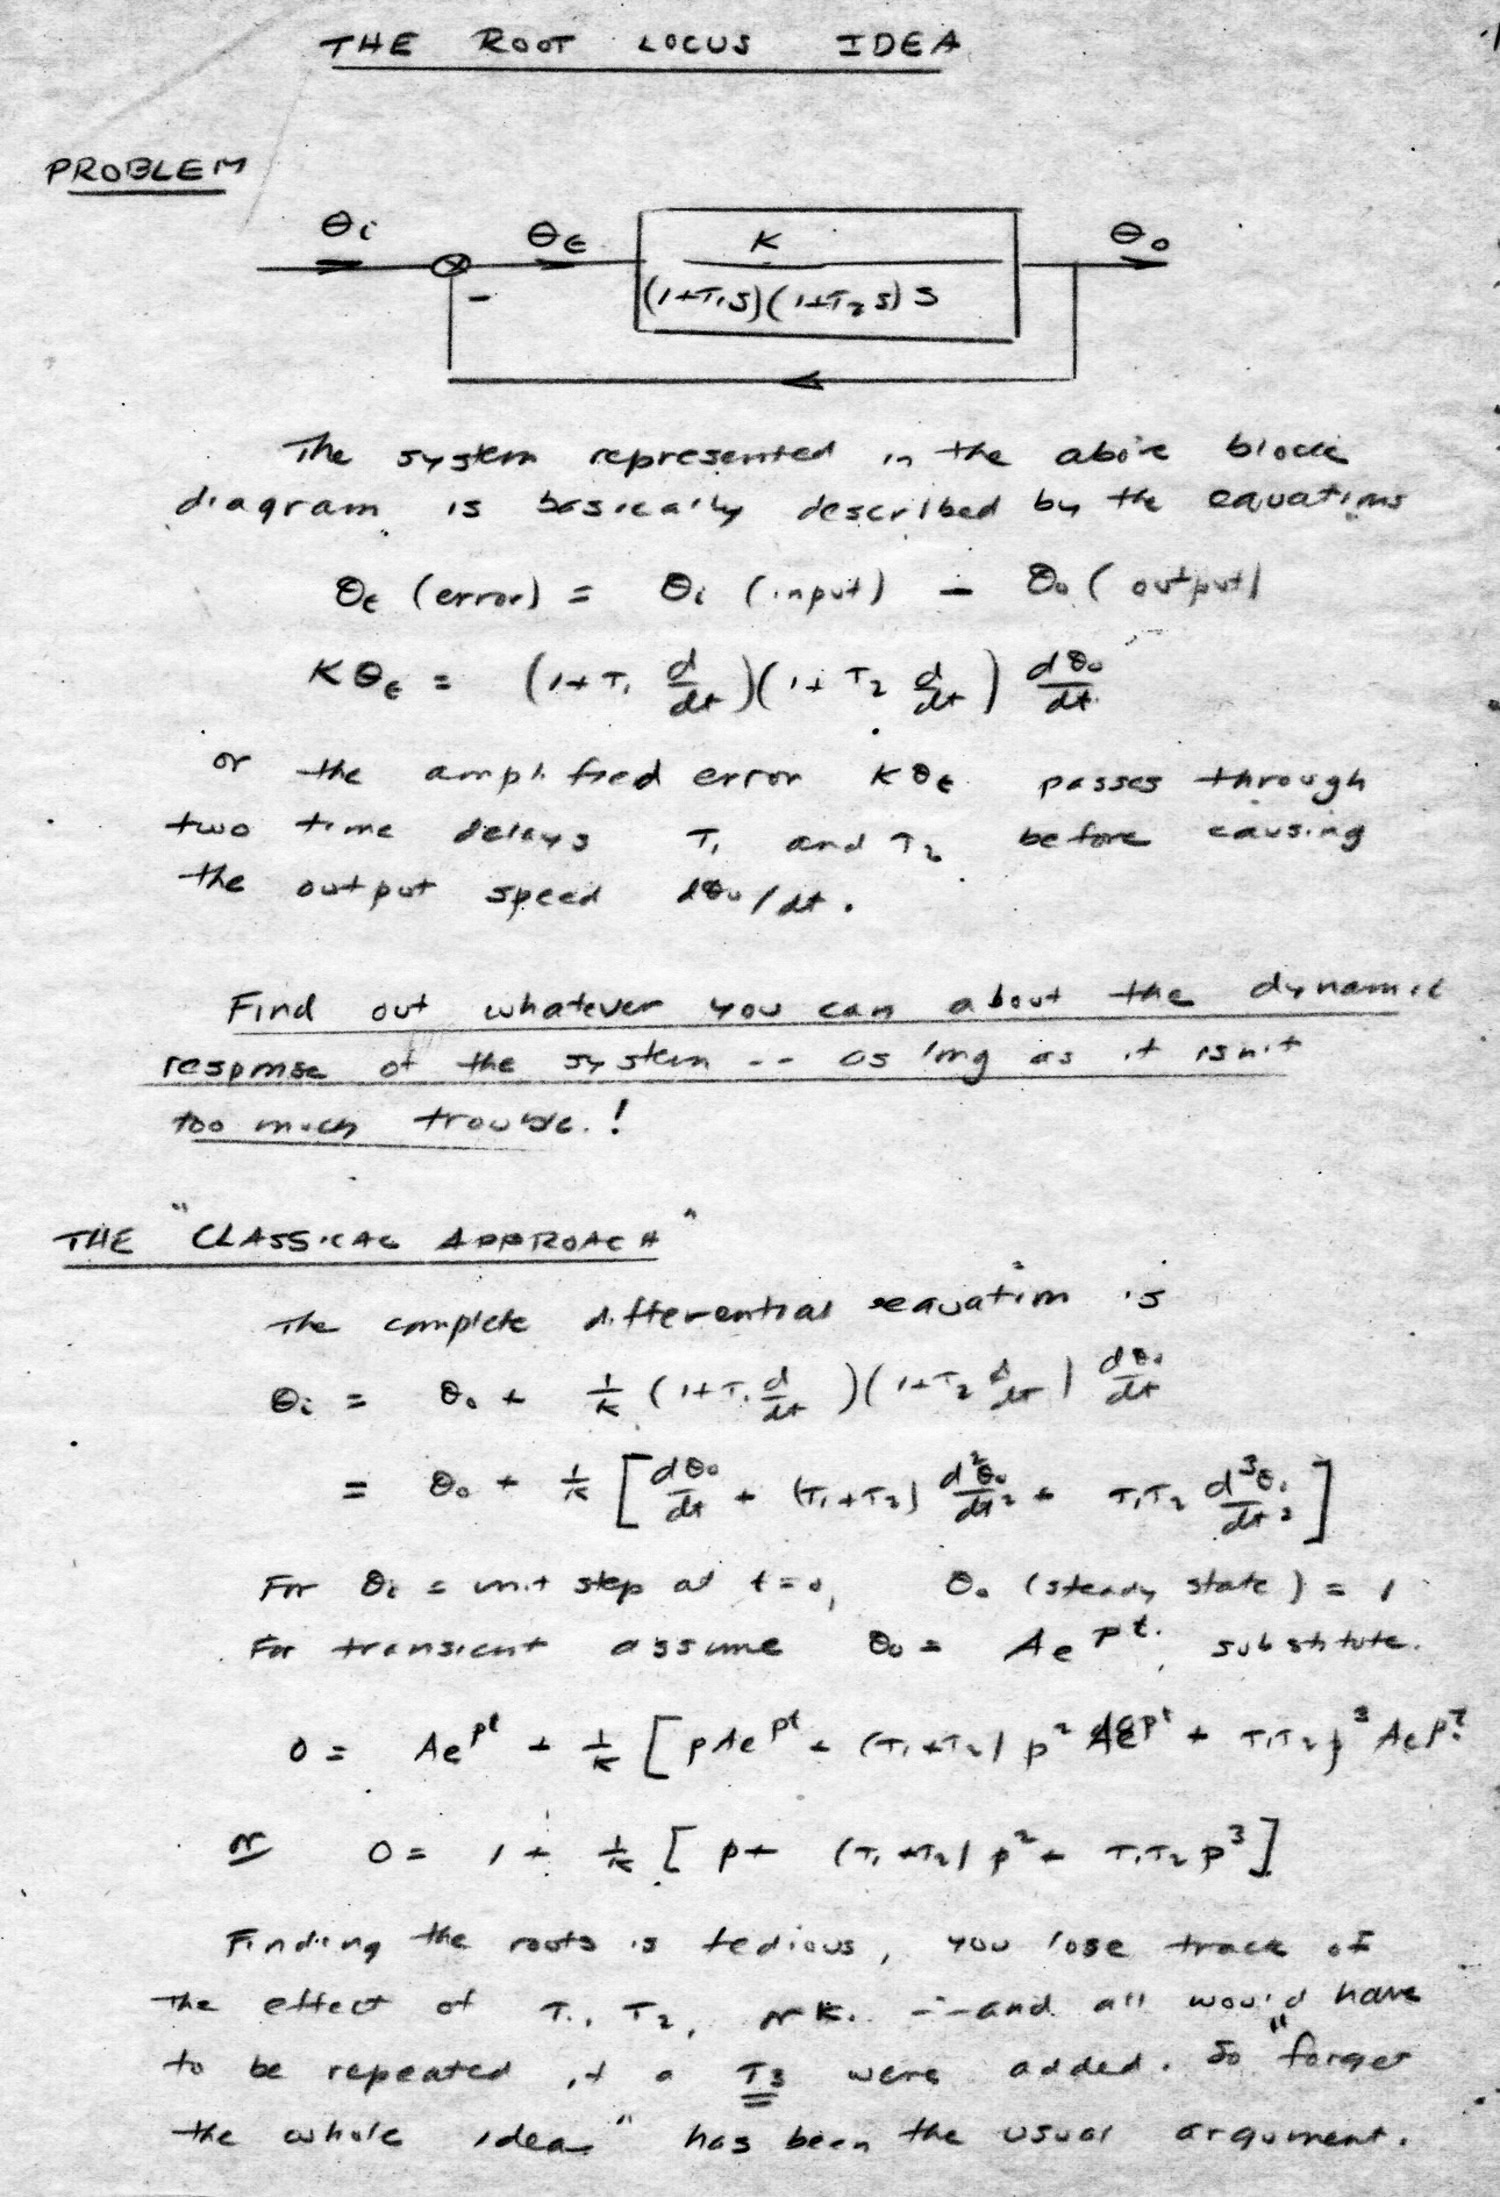 THE ROOT LOCUS IDEA
PROBLEM
θi θε K θo
(1+T1S)(1+T2S)S
-
The system represented in the above block
diagram is basically described by the equations
θε (error) = θi (input) − θo (output)
Kθε = (1+T1 d/dt)(1+T2 d/dt) dθo/dt
or the amplified error Kθε passes through
two time delays T1 and T2 before causing
the output speed dθo/dt.
Find out whatever you can about the dynamic
response of the system -- as long as it isn't
too much trouble.!
THE "CLASSICAL APPROACH"
The complete differential equation is
θi = θo + 1/K (1+T1 d/dt)(1+T2 d/dt) dθo/dt
= θo + 1/K [dθo/dt + (T1+T2) d²θo/dt² + T1T2 d³θo/dt²]
For θi = unit step at t=0, θo (steady state) = 1
For transient assume θo = Ae^pt. substitute.
0 = Ae^pt + 1/K [pAe^pt + (T1+T2) p² Ae^pt + T1T2 p³ Ae^pt]
or 0 = 1 + 1/K [p + (T1+T2) p² + T1T2 p³]
Finding the roots is tedious, you lose track of
the effect of T1, T2, or K. -- and all would have
to be repeated if a T3 were added. So "forget
the whole idea" has been the usual argument.